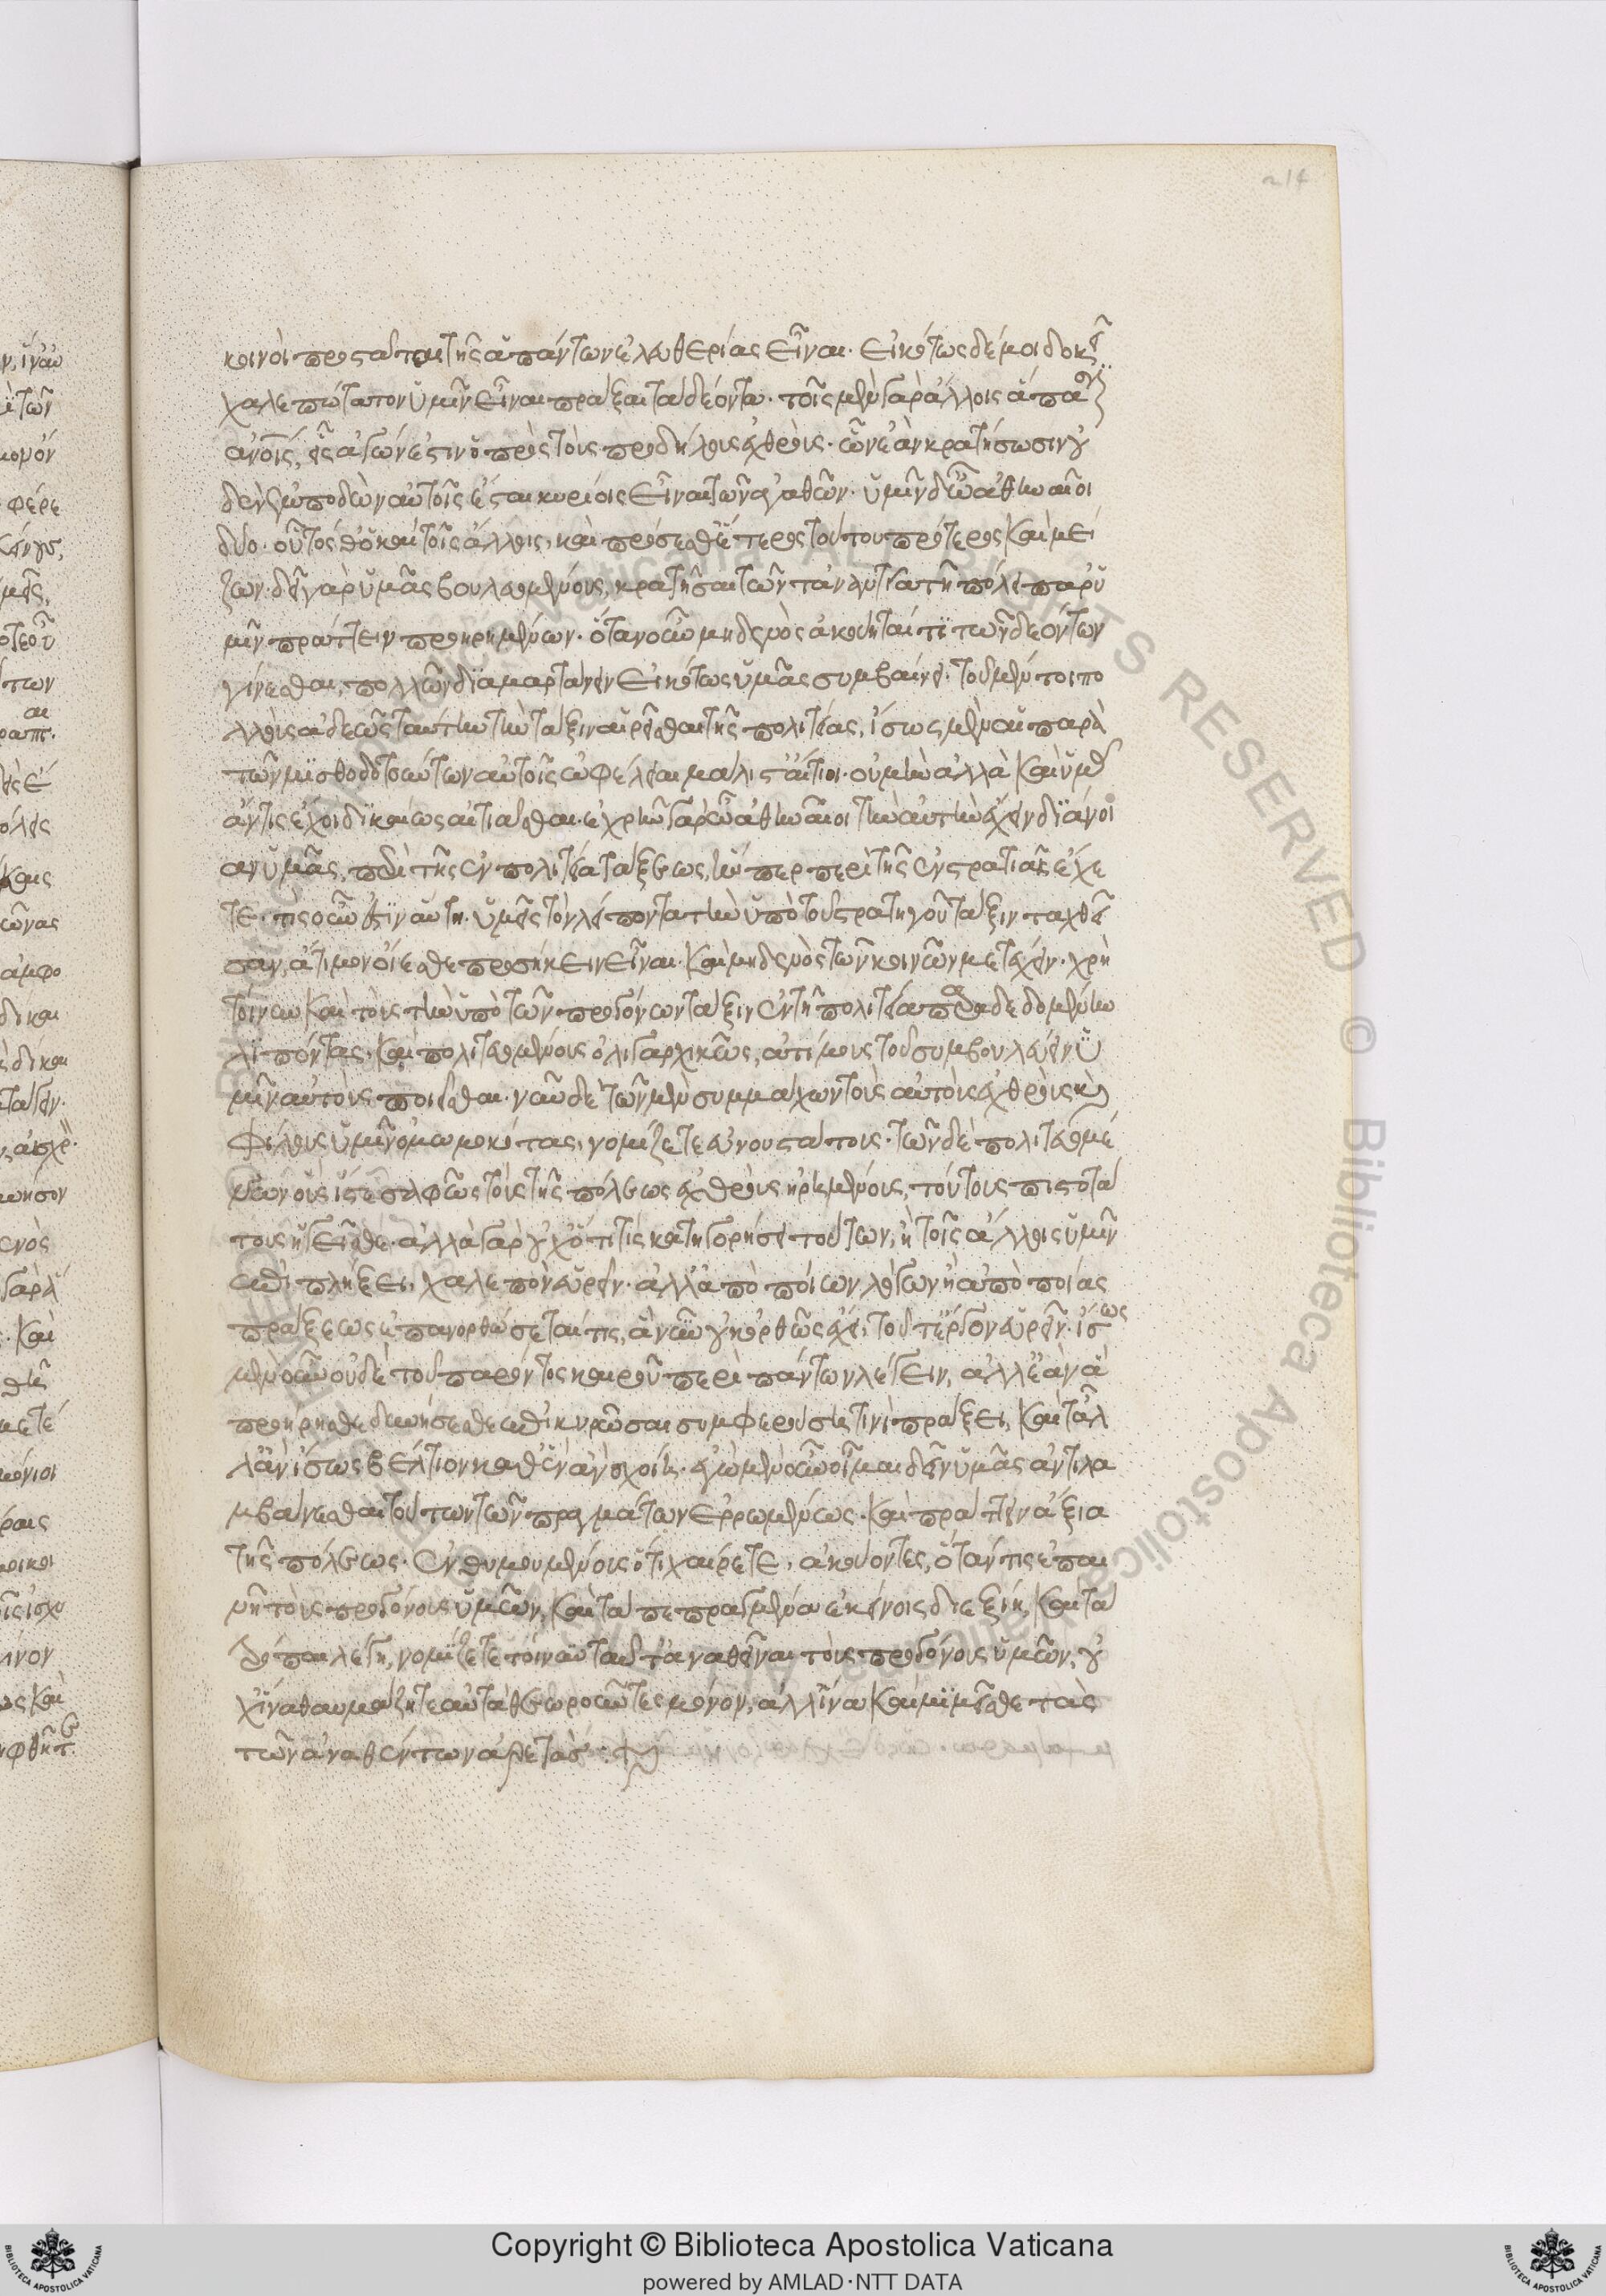 214
κοινοὶ προστάται τῆς ἁπάντων ἐλευθερίας εἶναι. εἰκότως δέ μοι δοκεῖ
χαλεπώτατον ὑμῖν εἶναι πρᾶξαι τὰ δέοντα. τοῖς μὲν γὰρ ἄλλοις ἅπασιν
ἀνοις, εἷς ἀγών ἐστιν ὁ πρὸς τοὺς προδήλους ἐχθρούς. ὧν ἐὰν κρατήσωσιν οὐ
δὲν ἐμποδὼν αὐτοῖς ἔσται κυρίοις εἶναι τῶν ἀγαθῶν. ὑμῖν δ' ὦ ἀθηναῖοι
δύο. οὗτός θ' ὁ καὶ τοῖς ἄλλοις, καὶ πρόσεσθ' ἕτερος τούτου πρότερος καὶ μεί
ζων. δεῖ γὰρ ὑμᾶς βουλευομένους, κρατῆσαι τῶν τἀναντία τῇ πόλει παρ' ὑ
μῖν πράττειν προῃρημένων. ὅταν οὖν μηδὲν ᾖ ἀκονιτί τι τῶν δεόντων
γίνεσθαι, πολλῶν διαμαρτάνειν εἰκότως ὑμᾶς συμβαίνει. τοῦ μέντοι πο
λλοὺς ἀδεῶς ταύτην τὴν τάξιν αἱρεῖσθαι τῆς πολιτείας, ἴσως μὲν αἱ παρὰ
τῶν μισθοδοτούντων αὐτοῖς ὠφέλειαι μάλιστ' αἴτιοι. οὐ μὴν ἀλλὰ καὶ ὑμᾶς
ἄν τις ἔχοι δικαίως αἰτιᾶσθαι. ἐχρῆν γὰρ ὦ ἀθηναῖοι τὴν αὐτὴν ἔχειν διάνοι
αν ὑμᾶς, περὶ τῆς ἐν πολιτείᾳ τάξεως, ἥνπερ περὶ τῆς ἐν στρατιαῖς ἔχε
τε. τίς οὖν ἐστιν αὕτη. ὑμεῖς τὸν λείποντα τὴν ὑπὸ τοῦ στρατηγοῦ τάξιν ταχθεῖ
σαν, ἄτιμον οἴεσθε προσήκειν εἶναι. καὶ μηδενὸς τῶν κοινῶν μετέχειν. χρῆ
τοίνυν καὶ τοὺς τὴν ὑπὸ τῶν προγόνων τάξιν ἐν τῇ πολιτείᾳ παραδεδομένην
λιπόντας. καὶ πολιτευομένους ὀλιγαρχικῶς, ἀτίμους τοῦ συμβουλεύειν ὑ
μῖν αὐτοὺς ποιεῖσθαι. νῦν δὲ τῶν μὲν συμμάχων τοὺς αὐτοὺς ἐχθροὺς καὶ
φίλους ὑμῖν ὀμωμοκότας, νομίζετε εὐνουστάτους. τῶν δὲ πολιτευομέ
νων οὓς ἴστε σαφῶς τοὺς τῆς πόλεως ἐχθροὺς ᾑρημένους, τούτους πιστοτά
τους ἡγεῖσθε. ἀλλὰ γὰρ οὐχ ὅ τι τίς κατηγορήσει τούτων, ἢ τοῖς ἄλλοις ὑμῖν
ἐπιπλήξει, χαλεπὸν εὑρεῖν. ἀλλ' ἀπὸ ποίων λόγων ἢ ἀπὸ ποίας
πράξεως ἐπανορθώσεταί τις, ἃ νῦν οὐκ ὀρθῶς ἔχει, τοῦτ' ἔργον εὑρεῖν. ἴσως
μὲν οὖν οὐδὲ τοῦ παρόντος καιροῦ περὶ πάντων λέγειν, ἀλλ' ἐὰν ἃ
προῄρησθε δυνήσεσθε ἐπικυρῶσαι συμφερούσῃ τινὶ πράξει, καὶ τἆλ
λ' ἂν ἴσως βέλτιον καθ' ἓν ἂν σχοίη. ἐγὼ μὲν οὖν οἶμαι δεῖν ὑμᾶς ἀντιλα
μβάνεσθαι τούτων τῶν πραγμάτων ἐρρωμένως. καὶ πράττειν ἄξια
τῆς πόλεως. ἐνθυμουμένους ὅτι χαίρετε, ἀκούοντες, ὅταν τις ἐπαι
νῇ τοὺς προγόνους ὑμῶν, καὶ τὰ πεπραγμένα ἐκείνοις διεξίῃ, καὶ τὰ
τρόπαια λέγῃ, νομίζετε τοίνυν ταῦτ' ἀναθεῖναι τοὺς προγόνους ὑμῶν, οὐ
χ' ἵνα θαυμάζητε αὐτὰ θεωροῦντες μόνον, ἀλλ' ἵνα καὶ μιμῆσθε τὰς
τῶν ἀναθέντων ἀρετάς:
Copyright © Biblioteca Apostolica Vaticana
powered by AMLAD·NTT DATA